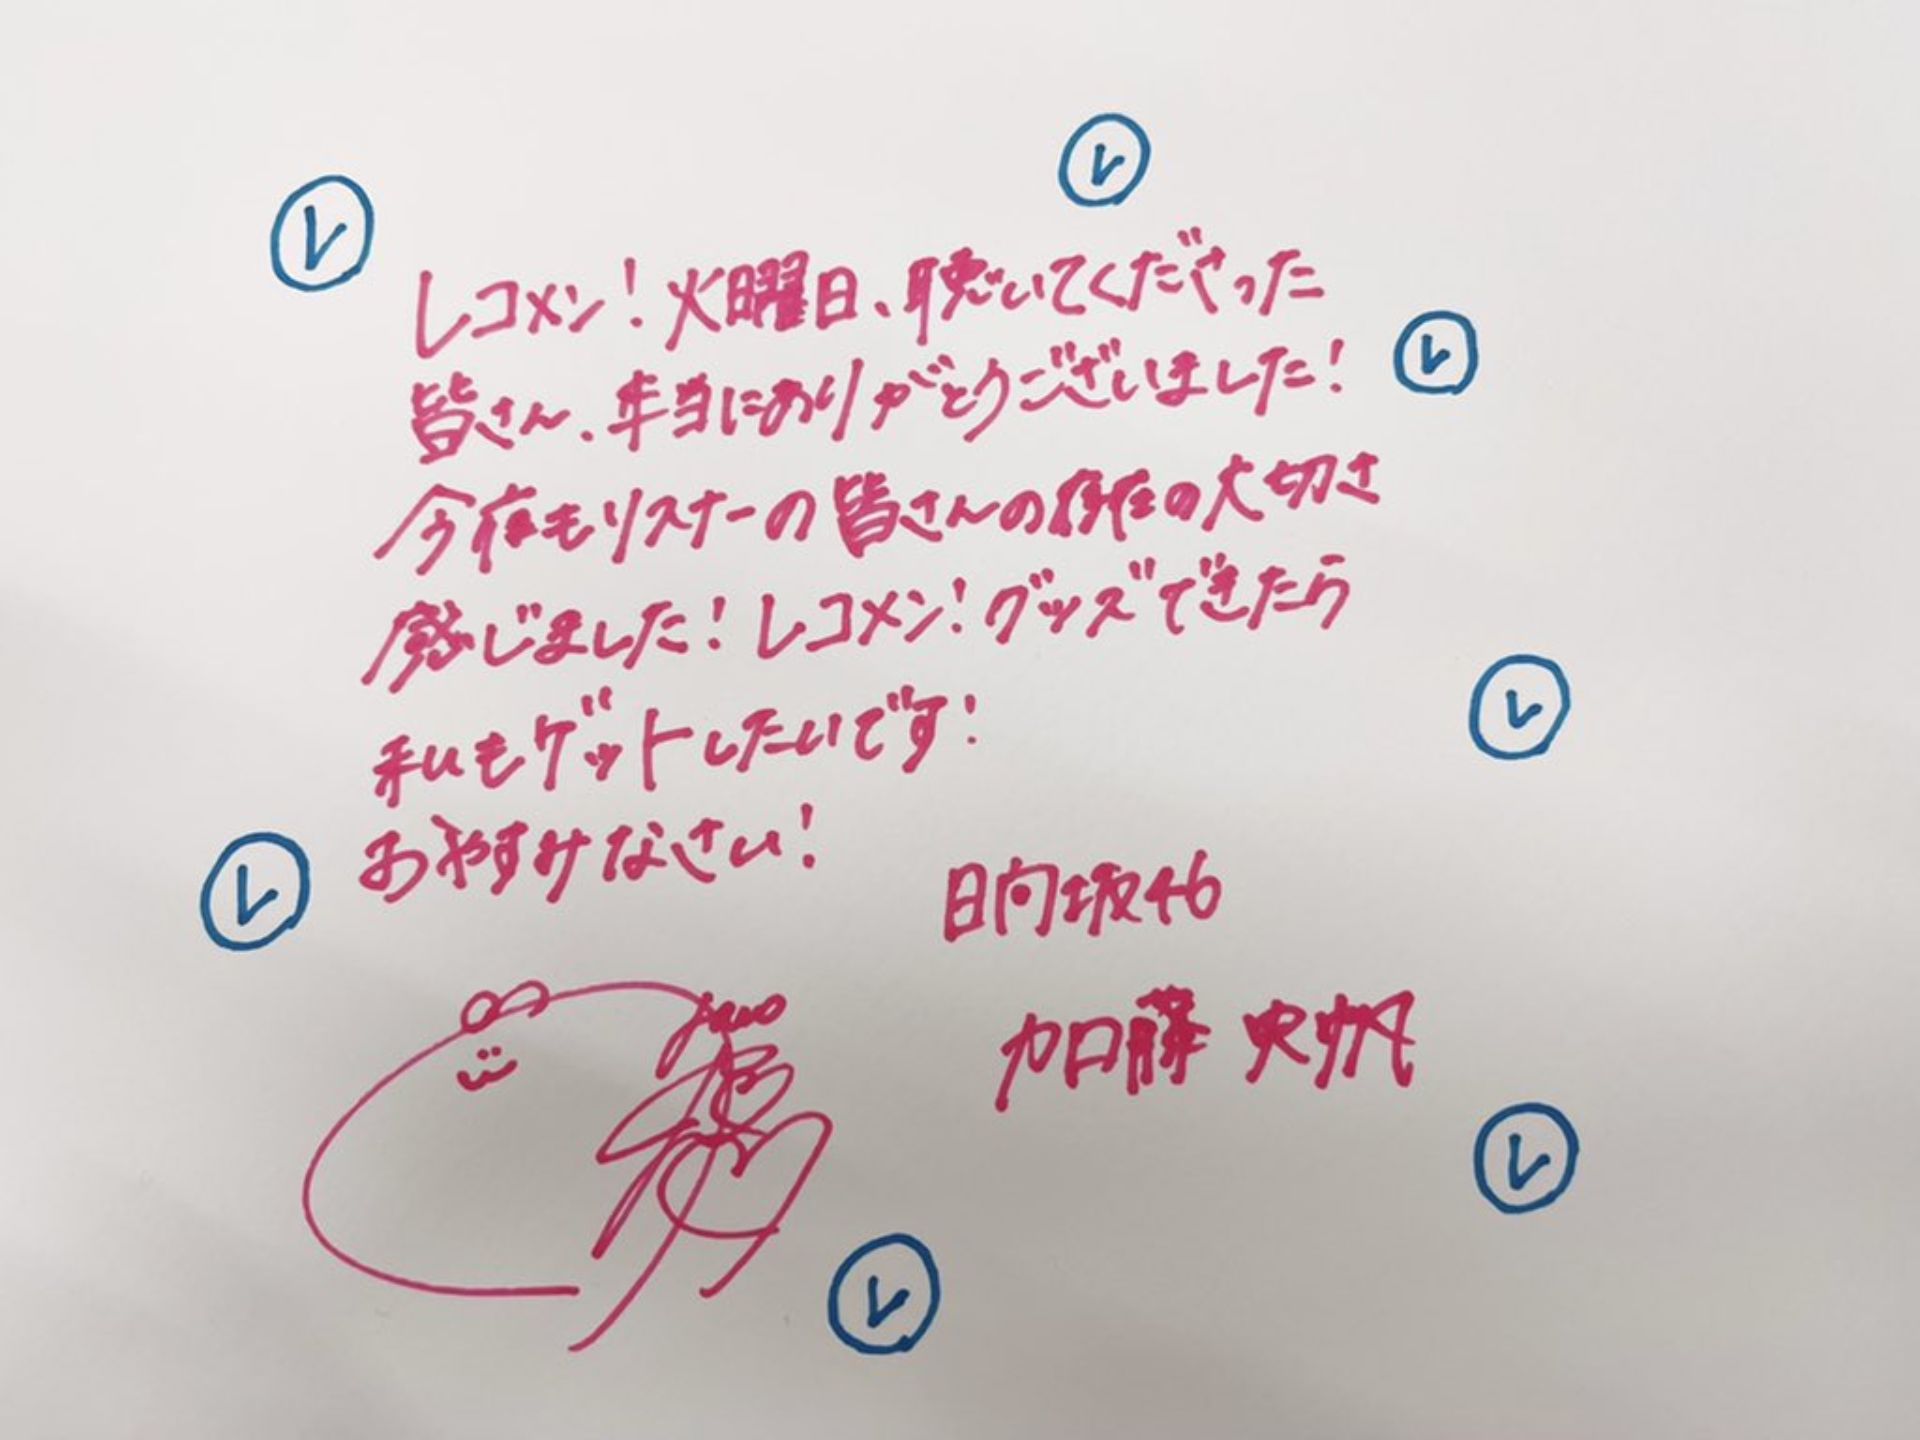 レ
レ
レコメン!火曜日、聴いてくださった
皆さん、本当にありがとうございました!
レ
今夜もリスナーの皆さんの存在の大切さ
感じました!レコメン!グッズできたら
私もゲットしたいです!
レ
おやすみなさい!
レ
日向坂46
加藤史帆
レ
レ